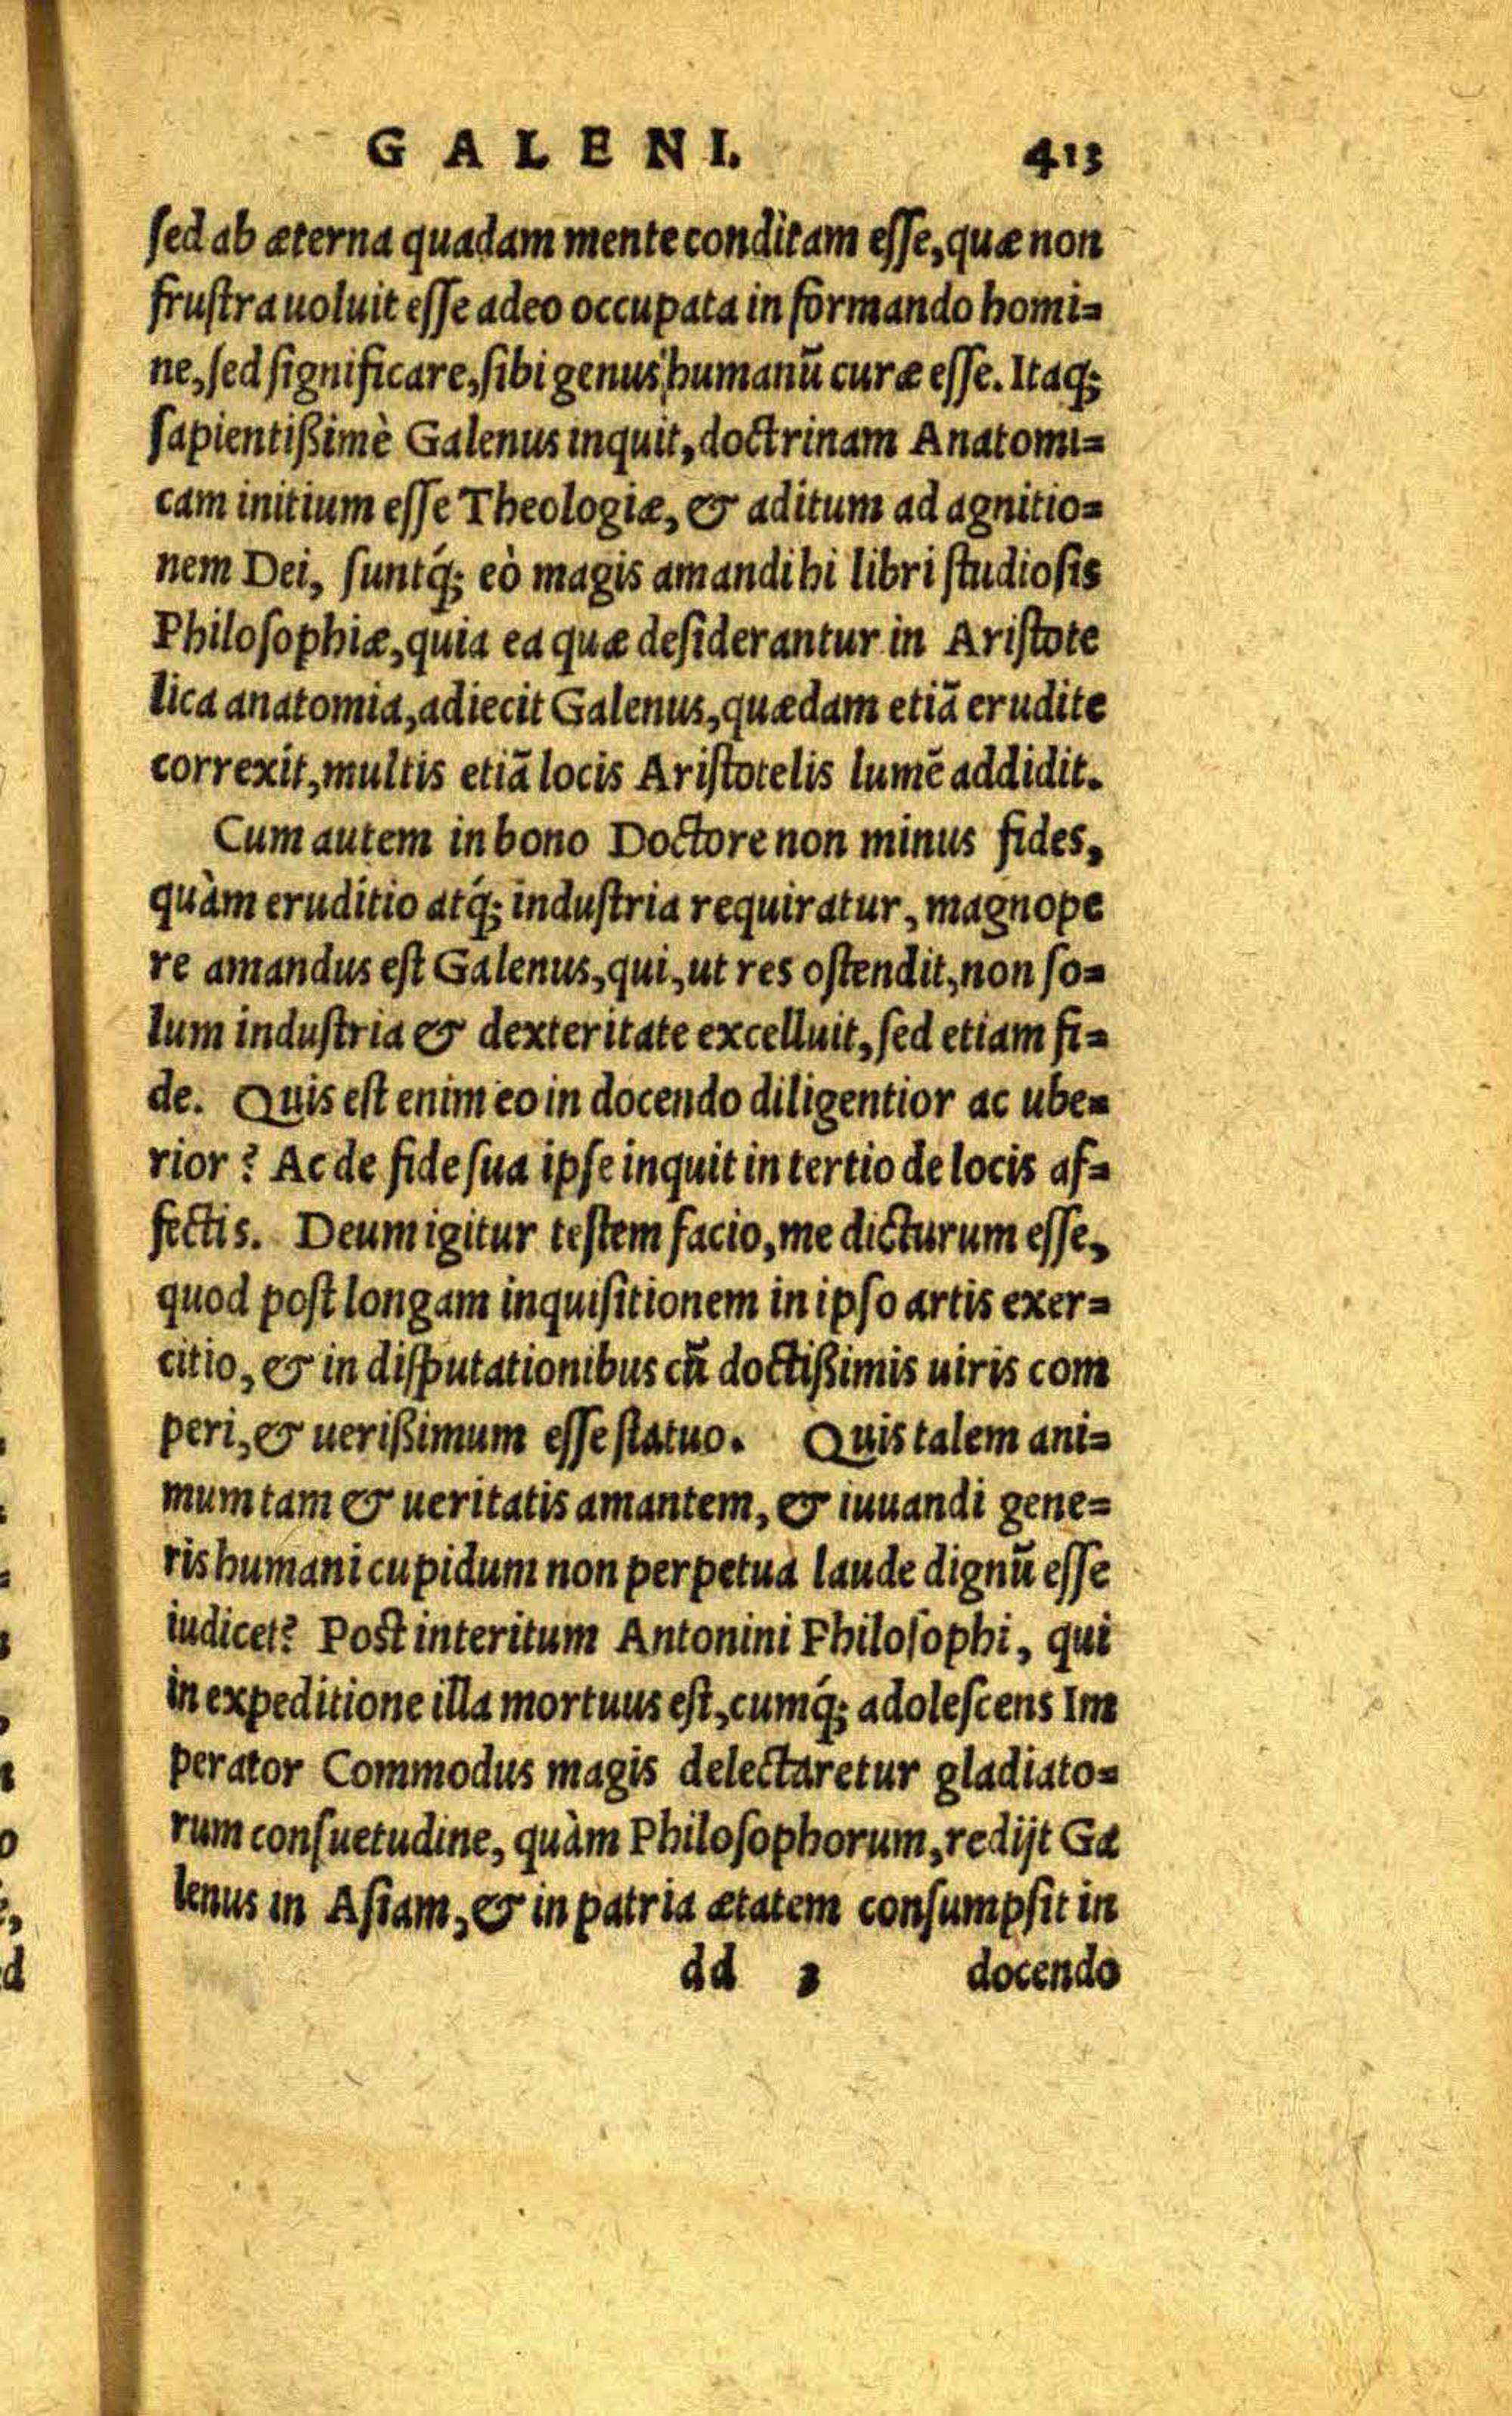 GALENI. 413
ſed ab æterna quadam mente conditam eſſe, quæ non
fruſtra uoluit eſſe adeo occupata in formando homi=
ne, ſed ſignificare, ſibi genus humanũ curæ eſſe. Itaq;
ſapientißimè Galenus inquit, doctrinam Anatomi=
cam initium eſſe Theologiæ, & aditum ad agnitio=
nem Dei, ſuntq́; eò magis amandi hi libri ſtudioſis
Philoſophiæ, quia ea quæ deſiderantur in Ariſtote
lica anatomia, adiecit Galenus, quædam etiã erudite
correxit, multis etiã locis Ariſtotelis lumẽ addidit.
Cum autem in bono Doctore non minus fides,
quàm eruditio atq́; induſtria requiratur, magnope
re amandus eſt Galenus, qui, ut res oſtendit, non ſo=
lum induſtria & dexteritate excelluit, ſed etiam fi=
de. Quis eſt enim eo in docendo diligentior ac ube=
rior? Ac de fide ſua ipſe inquit in tertio de locis af=
fectis. Deum igitur teſtem facio, me dicturum eſſe,
quod poſt longam inquiſitionem in ipſo artis exer=
citio, & in diſputationibus cũ doctißimis uiris com
peri, & uerißimum eſſe ſtatuo. Quis talem ani=
mum tam & ueritatis amantem, & iuuandi gene=
ris humani cupidum non perpetua laude dignũ eſſe
iudicet? Poſt interitum Antonini Philoſophi, qui
in expeditione illa mortuus eſt, cumq́; adoleſcens Im
perator Commodus magis delectaretur gladiato=
rum conſuetudine, quàm Philoſophorum, redijt Ga
lenus in Aſiam, & in patria ætatem conſumpſit in
dd docendo